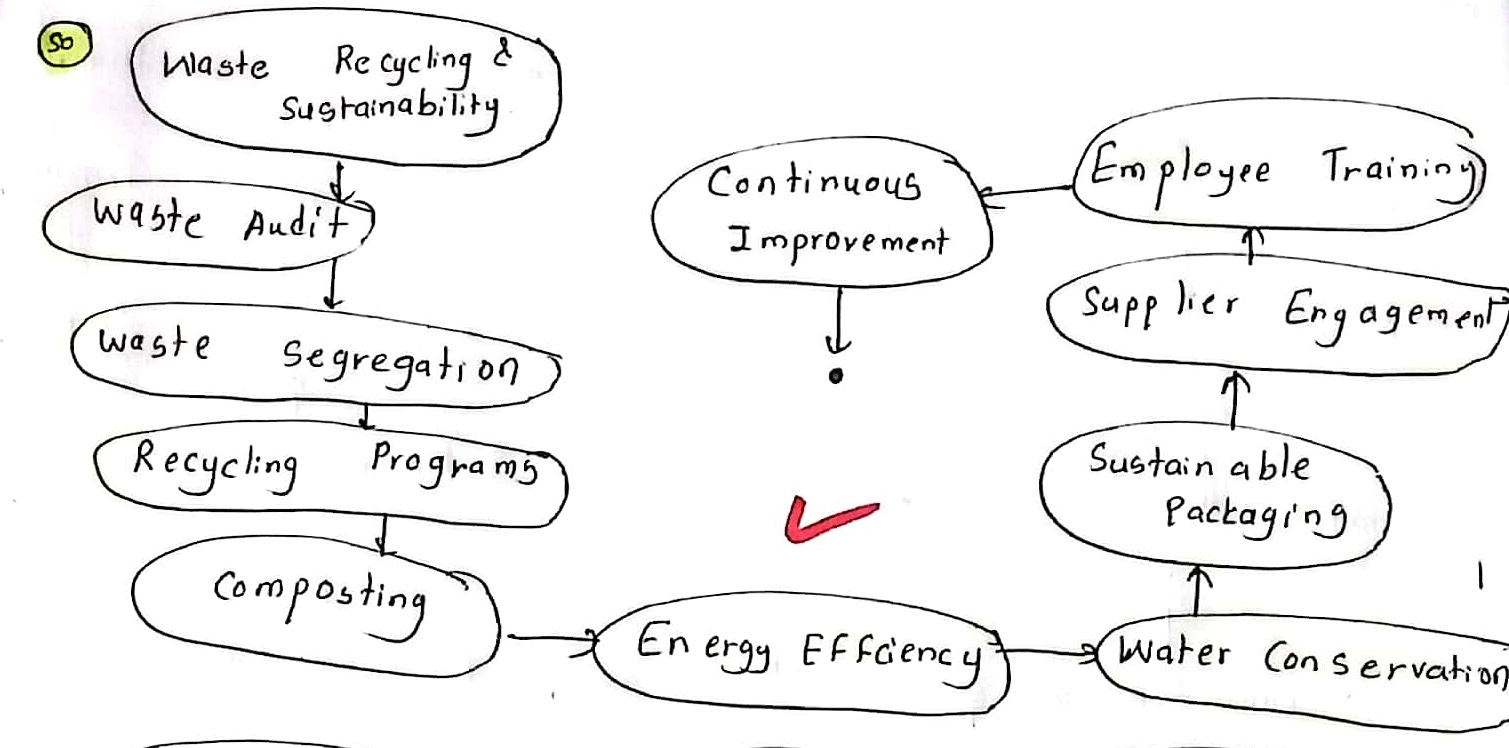 50
Waste Recycling &
Sustainability
Waste Audit
Waste Segregation
Recycling Programs
Composting
Energy Effciency
Water Conservation
Sustainable
Packaging
Supplier Engagement
Employee Training
Continuous
Improvement